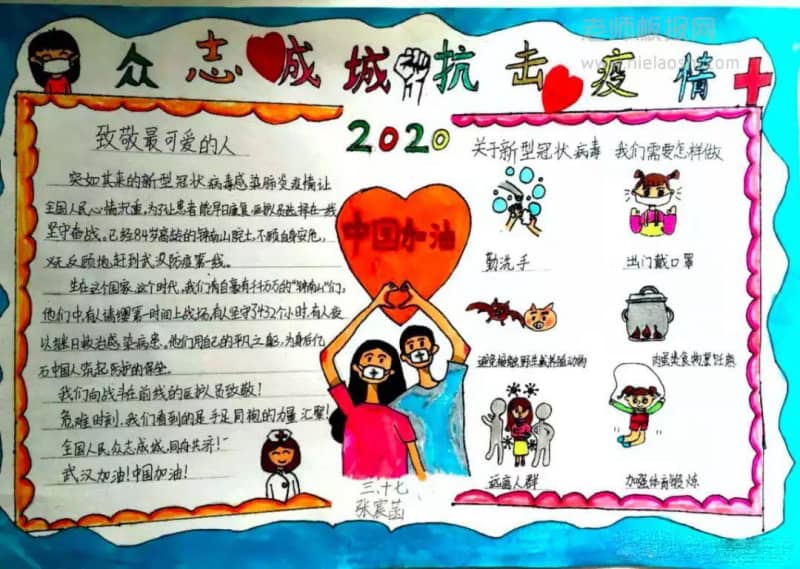 老师板报网
www.mielaoshi.com
众志成城抗击疫情
2020
致敬最可爱的人
突如其来的新型冠状病毒感染肺炎疫情让
全国人民心情沉重,为了让患者能早日康复,医护人员选择在一线
坚守奋战。已经84岁高龄的钟南山院士,不顾自身安危,
义无反顾地赶到武汉防疫第一线。
生在这个国家,这个时代,我们有自豪有千千万万的“钟南山”们,
他们中,有人请缨第一时间上战场,有人坚守了432个小时,有人夜
以继日救治感染病患。他们用自己的平凡之躯,为身后亿
万中国人筑起防护的保垒。
我们向战斗在前线的医护人员致敬!
危难时刻,我们看到的是手足同袍的力量汇聚!
全国人民众志成城,同舟共济!
武汉加油!中国加油!
中国加油
三.十七
张宸菡
关于新型冠状病毒 我们需要怎样做
勤洗手
出门戴口罩
避免接触野生或养殖动物
肉蛋类食物要煮熟
远离人群
加强体育锻炼